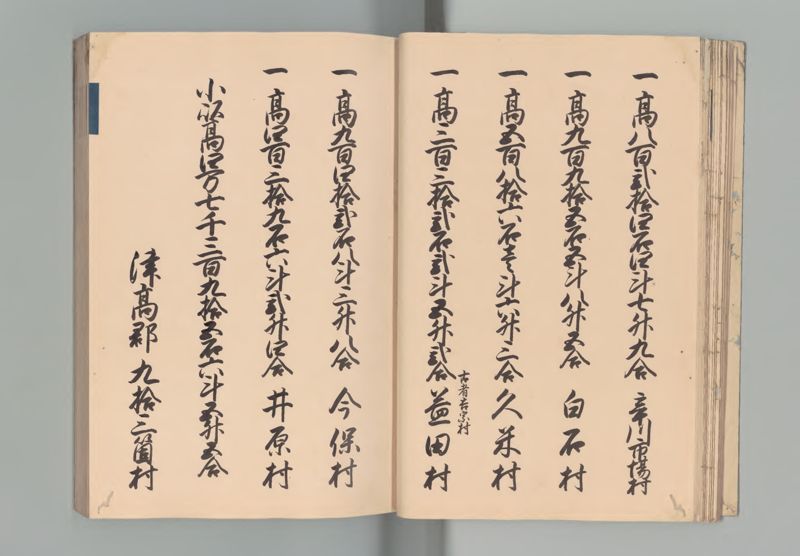 一 高八百弐拾四石四斗七升九合 辛川市場村
一 高九百九拾五石五斗八升五合 白石村
一 高五百八拾六石壱斗六升三合 久米村
古者吉宗村
一 高三百三拾弐石弐斗五升弐合 益田村
一 高九百四拾弐石八斗三升八合 今保村
一 高四百三拾九石六斗弐升四合 井原村
小以高四万七千三百九拾五石六斗五升五合
津高郡 九拾三箇村